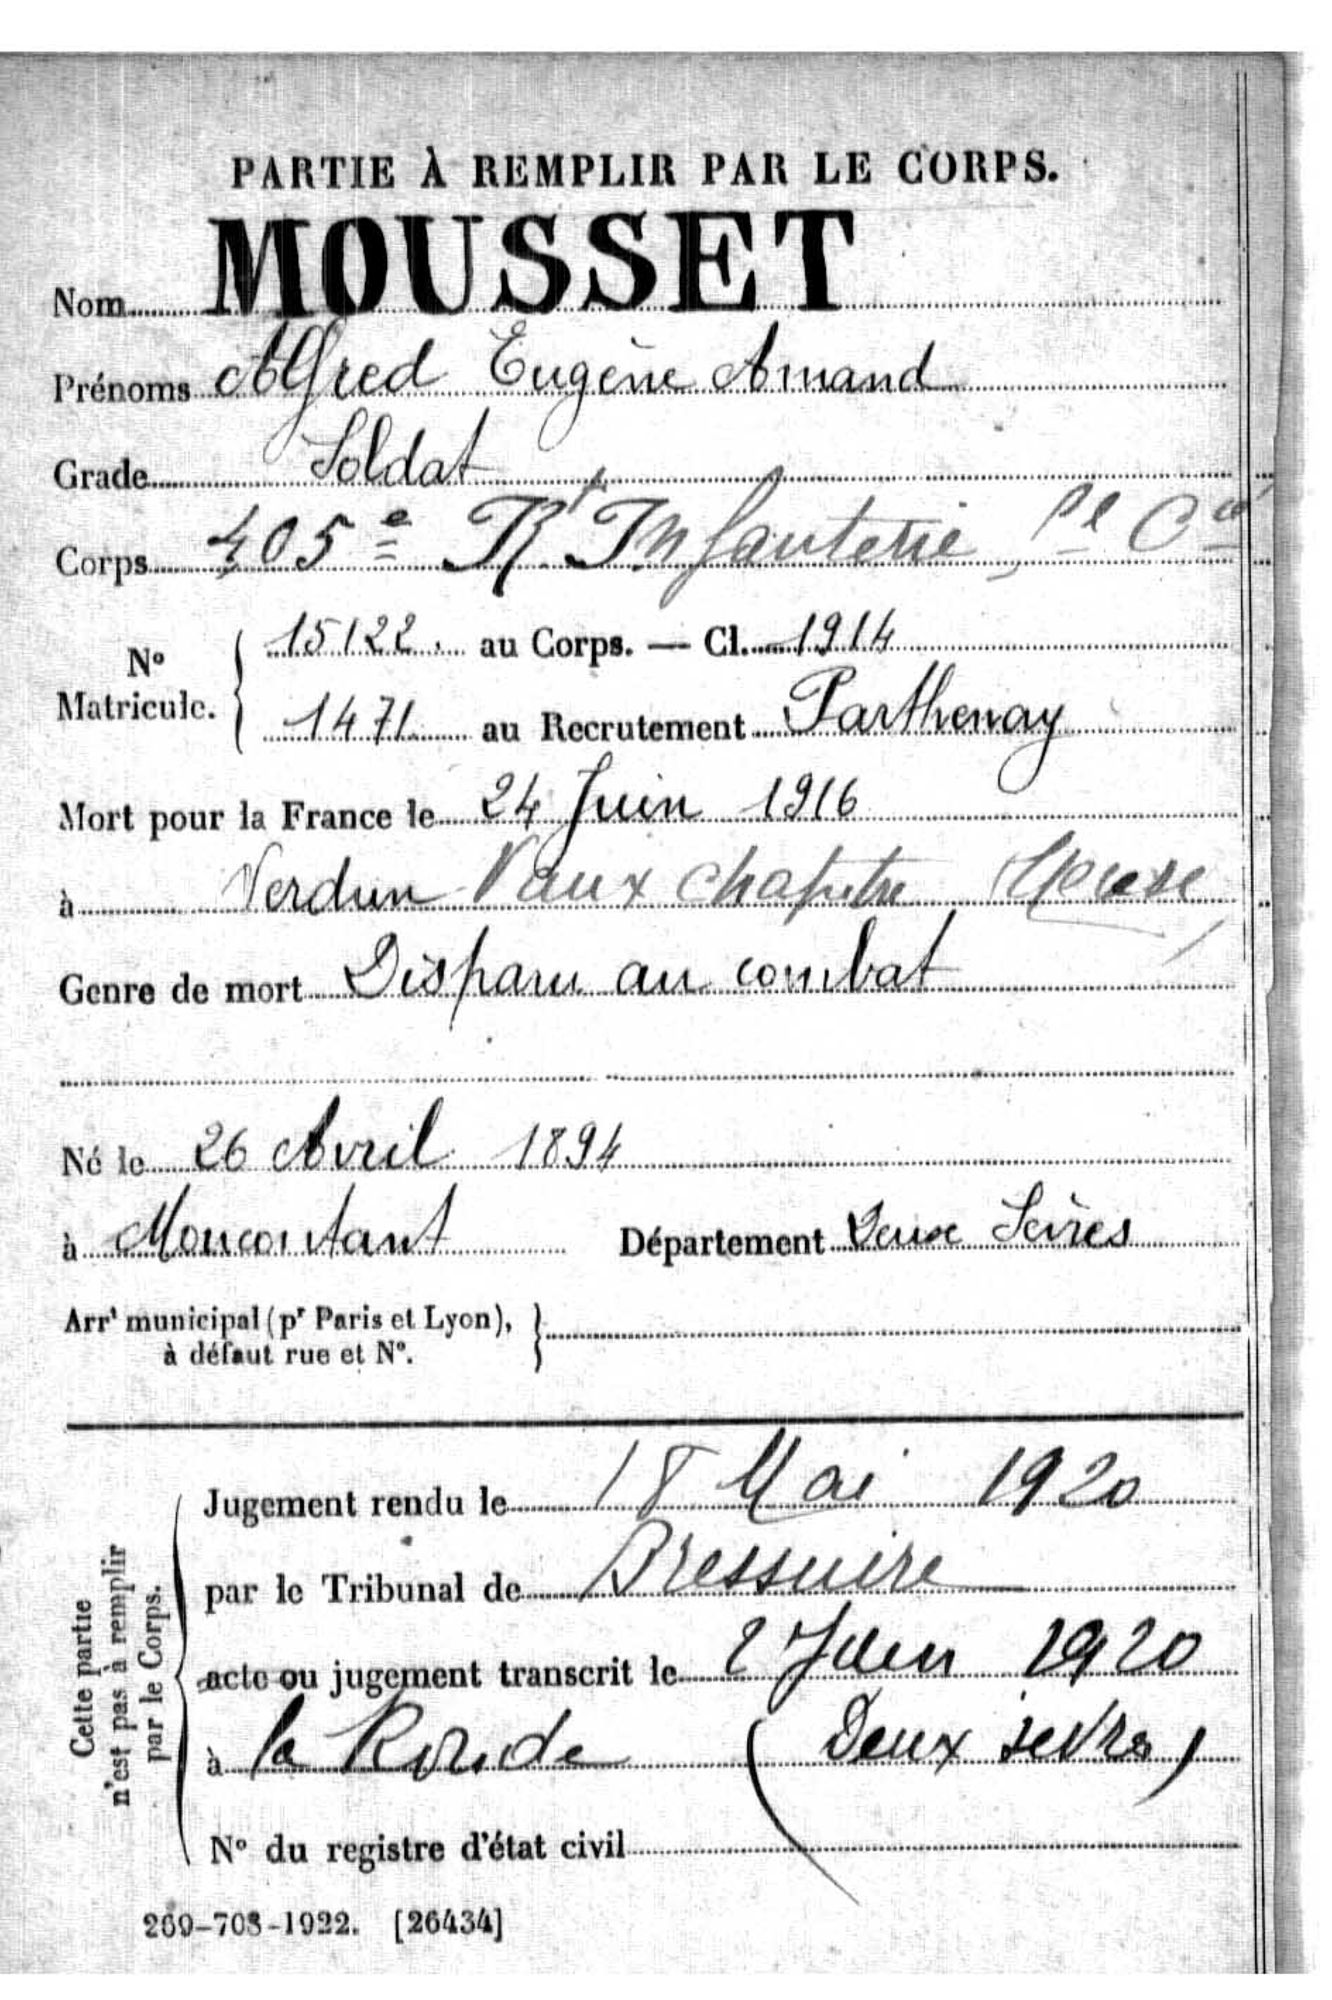 PARTIE À REMPLIR PAR LE CORPS.
Nom MOUSSET
Prénoms Alfred Eugène Amand
Grade Soldat
Corps 405e Rt Infanterie, Cie
No Matricule. { 15122. au Corps. — Cl. 1914
1471 au Recrutement Parthenay
Mort pour la France le 24 Juin 1916
à Verdun Vaux chapitre Meuse
Genre de mort Disparu au combat
Né le 26 Avril 1894
à Moncontant Département Deux Sèvres
Arrt municipal (pr Paris et Lyon), }
à défaut rue et No.
Cette partie
n'est pas à remplir
par le Corps.
Jugement rendu le 18 Mai 1920
par le Tribunal de Bressuire
acte ou jugement transcrit le 2 Juin 1920
à la Ronde (Deux sevres)
No du registre d'état civil
269-708-1922. [26434]